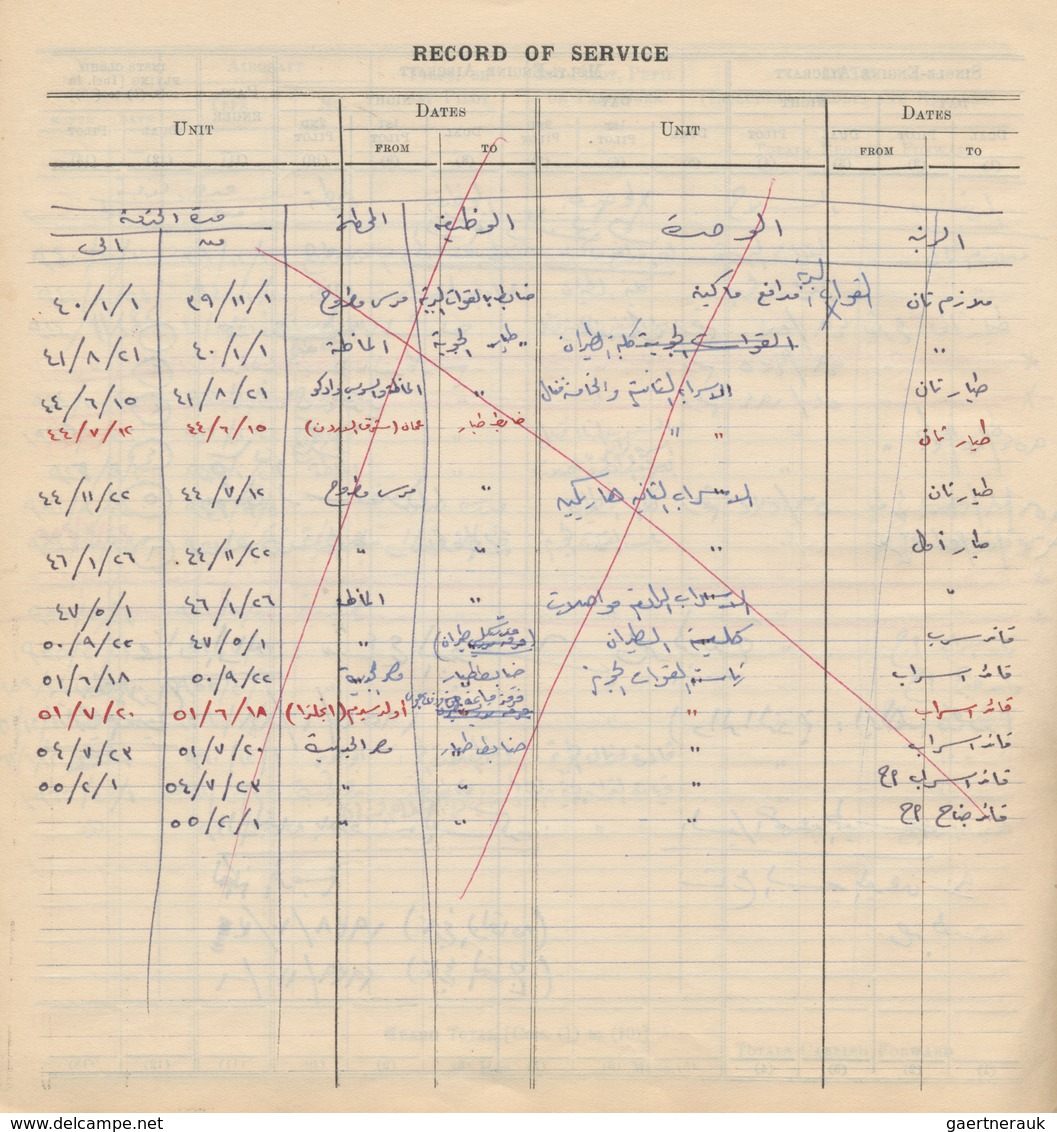 RECORD OF SERVICE
UNIT DATES UNIT DATES
FROM TO FROM TO
الرتبة الوحدة الوظيفة المحطة مدة الخدمة
من الى
ملازم ثان القوات البرية مدافع ماكينة ضابط بالقوات البرية مرسى مطروح ٣٩/١١/١ ٤٠/١/١
" القوات الجوية كلية الطيران " الجوية الماظة ٤٠/١/١ ٤١/٨/٢١
طيار ثان الاسراب الثانية والخامسة قتال " ٤١/٨/٢١ ٤٤/٦/١٥
طيار ثان " " ضابط طيار عمان (شرق الاردن) ٤٤/٦/١٥ ٤٤/٧/١٢
طيار ثان الثانية هاريكين " مرسى مطروح ٤٤/٧/١٢ ٤٤/١١/٢٢
طيار أول " " " ٤٤/١١/٢٢ ٤٦/١/٢٦
" الرابع مواصلات " الماظة ٤٦/١/٢٦ ٤٧/٥/١
قائد سرب كلية الطيران طيران) " ٤٧/٥/١ ٥٠/٩/٢٢
قائد اسراب رئاسة القوات الجوية ضابط طيار مصر الجديدة ٥٠/٩/٢٢ ٥١/٦/١٨
قائد اسراب " (انجلترا) ٥١/٦/١٨ ٥١/٧/٢٠
قائد اسراب " ضابط طيار مصر الجديدة ٥١/٧/٢٠ ٥٤/٧/٢٣
قائد اسراب أح " " " ٥٤/٧/٢٣ ٥٥/٢/١
قائد جناح أح " " " ٥٥/٢/١
gaertnerauk www.delcampe.net